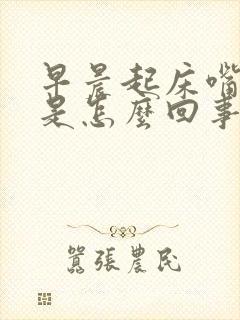 早晨起床嘴
是怎麼回事
囂張農民